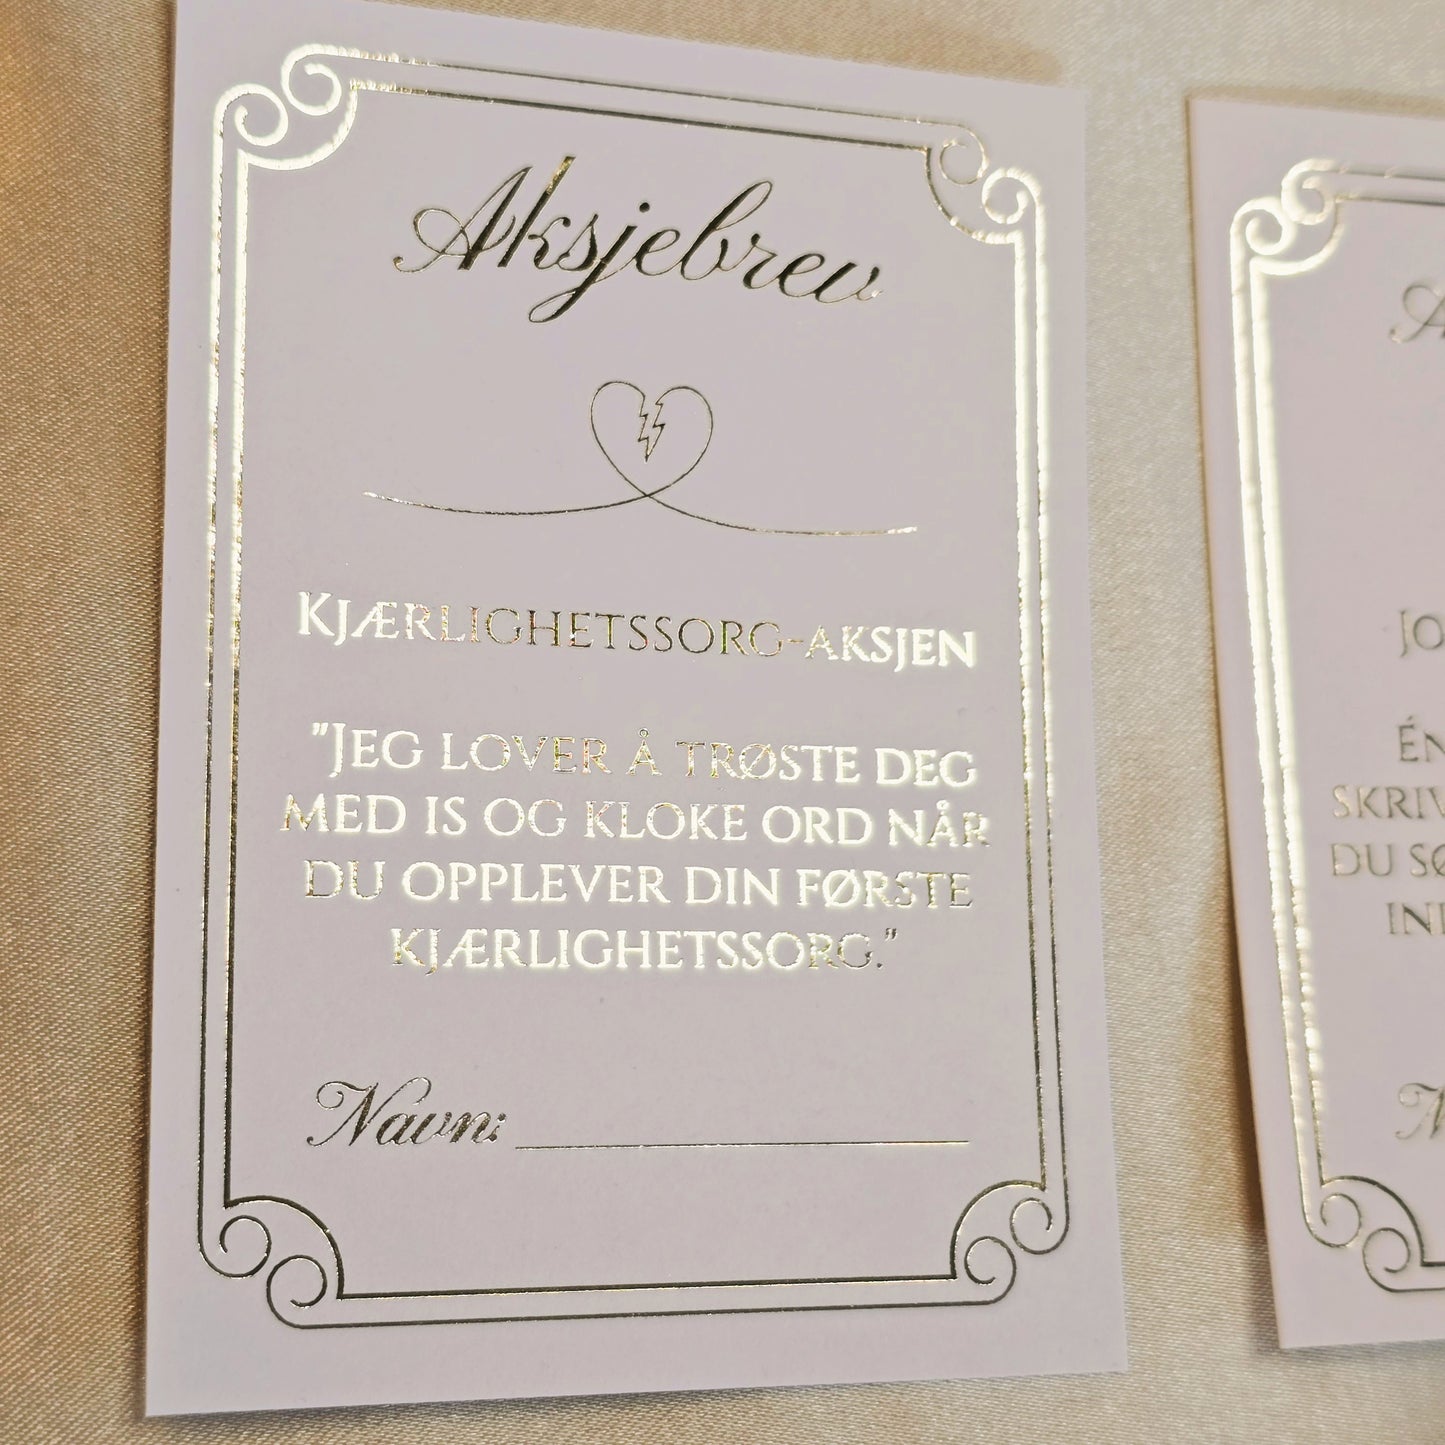 Aksjebrev
Kjærlighetssorg-aksjen
"Jeg lover å trøste deg
med is og kloke ord når
du opplever din første
kjærlighetssorg."
Navn:
du